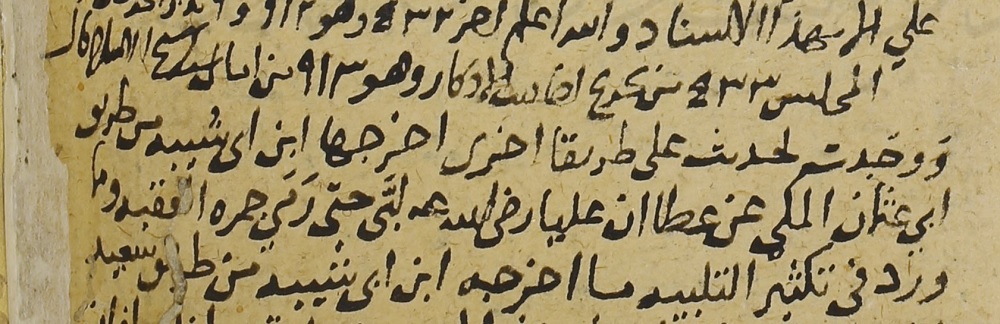 علي الا بهذا الاسناد والله اعلم اخر ٤٣٣ وهو ٩١٣
المجلس ٤٣٣ من تخريج احاديث الاذكار وهو ٩١٣ من امالي شيخ الاسلام قال
ووجدت لحديث علي طريقا اخرى اخرجها ابن ابي شيبه من طريق
ابي عثمان المكي عن عطا ان عليا رضي الله عنه لبى حتى رمي جمره العقبه ومما
ورد في تكثير التلبيه ما اخرجه ابن ابي شيبه من طريق سعيد